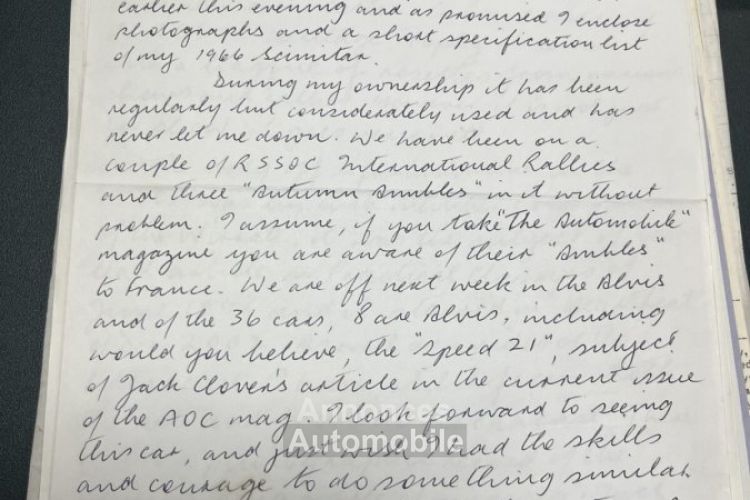 earlier this evening and as promised I enclose
photographs and a short specification list
of my 1966 Scimitar.
During my ownership it has been
regularly but considerately used and has
never let me down. We have been on a
couple of RSSOC International Rallies
and three "Autumn Ambles" in it without
problem. I assume, if you take "The Automobile"
magazine you are aware of their "Ambles"
to France. We are off next week in the Alvis
and of the 36 cars, 8 are Alvis, including
would you believe, the "Speed 21", subject
of Jack Clover's article in the current issue
of the AOC mag. I look forward to seeing
this car, and just wish I had the skills
and courage to do something similar
Annonces
Automobile